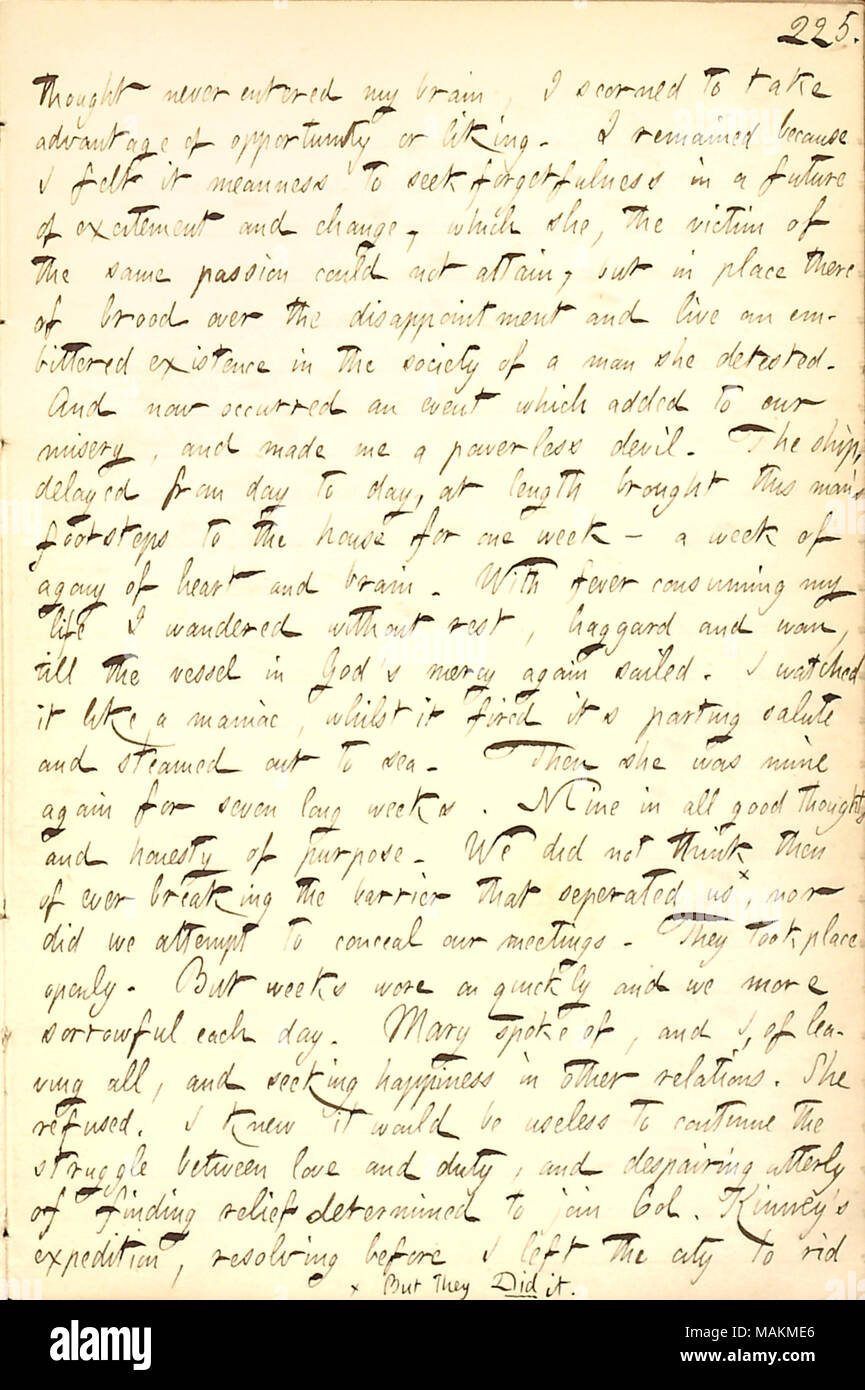 225.
thought never entered my brain, I scorned to take
advantage of opportunity or liking. I remained because
I felt it meanness to seek forgetfulness in a future
of excitement and change, which she, the victim of
the same passion could not attain, but in place there
of brood over the disappointment and live an em-
bittered existence in the society of a man she detested.
And now occurred an event which added to our
misery, and made me a powerless devil. The ship,
delayed from day to day, at length brought this man's
footsteps to the house for one week — a week of
agony of heart and brain. With fever consuming my
life I wandered without rest, haggard and wan,
till the vessel in God's mercy again sailed. I watched
it like a maniac, whilst it fired its parting salute
and steamed out to sea. Then she was mine
again for seven long weeks. Mine in all good thought,
and honesty of purpose. We did not think then
of ever breaking the barrier that seperated us x, nor
did we attempt to conceal our meetings. They took place
openly. But weeks wore on quickly and we more
sorrowful each day. Mary spoke of, and I, of lea-
ving all, and seeking happiness in other relations. She
refused. I knew it would be useless to continue the
struggle between love and duty, and despairing utterly
of finding relief determined to join Col. Kinney's
expedition, resolving before I left the city to rid
x But They Did it.
alamy
Image ID: MAKME6
www.alamy.com